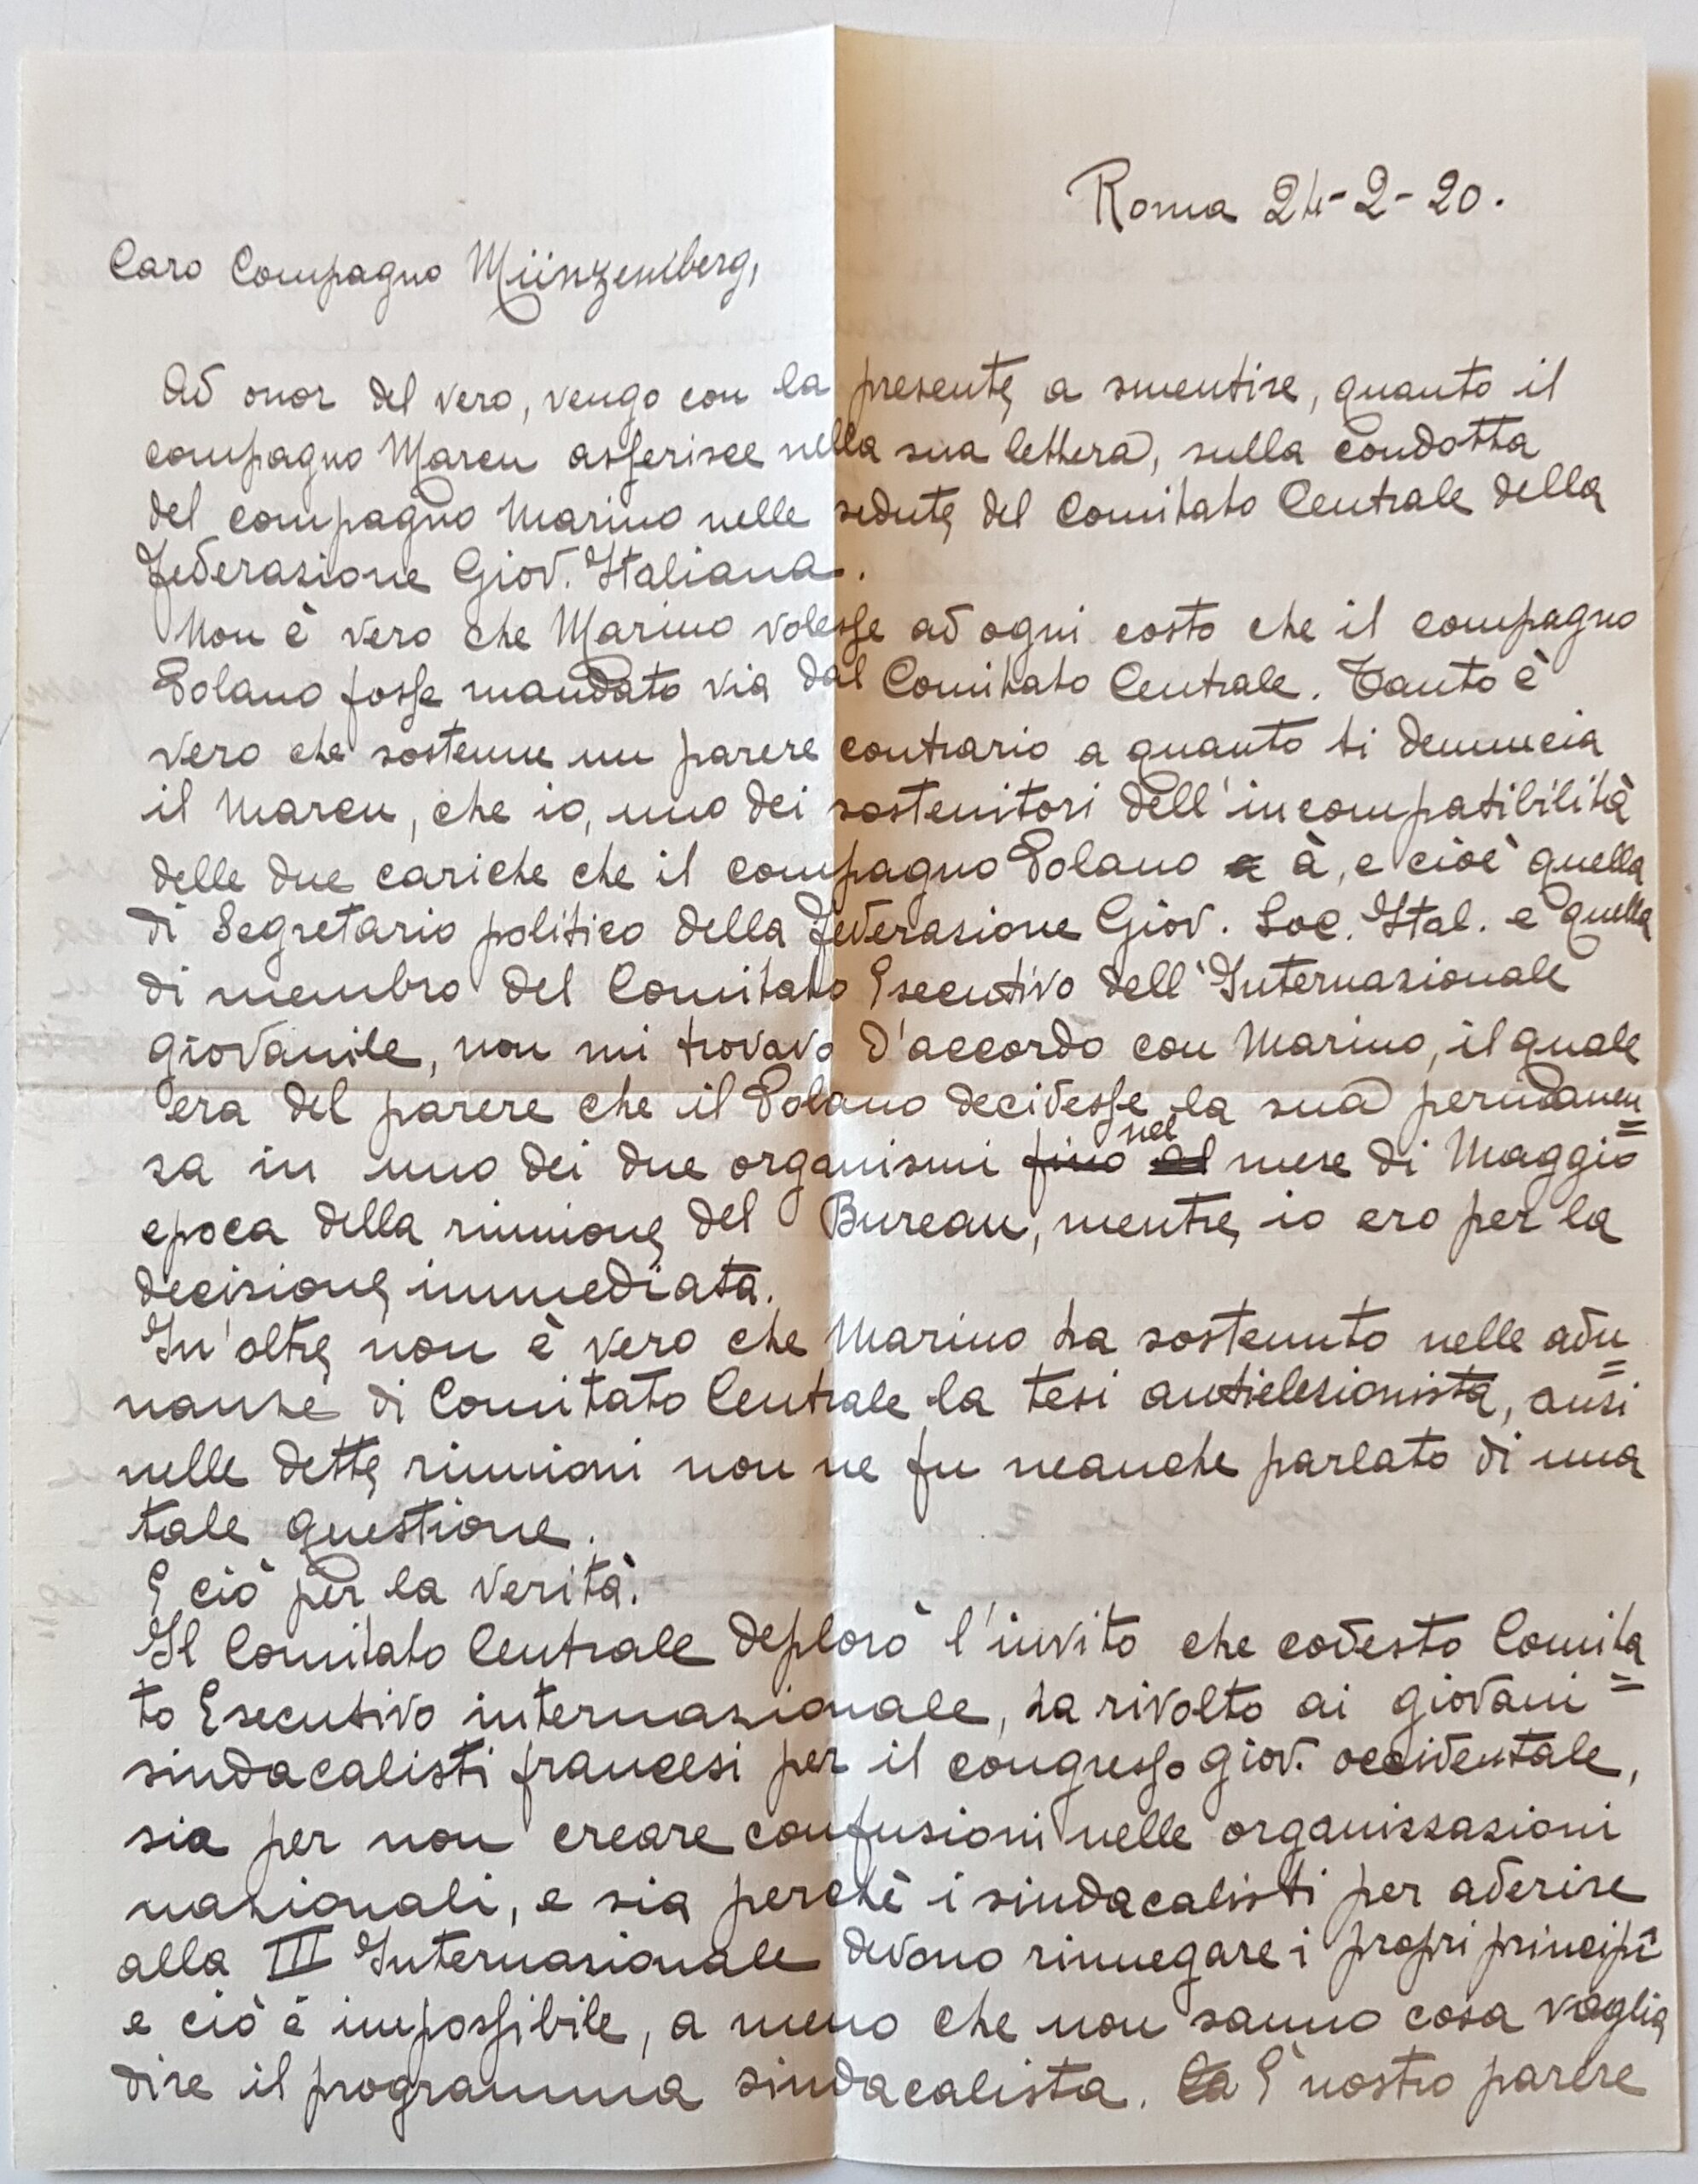 Roma 24-2-20.
Caro Compagno Münzemberg,
Ad onor del vero, vengo con la presente, a smentire, quanto il
compagno Marcu asserisce nella sua lettera, sulla condotta
del compagno Marino nelle sedute, del Comitato Centrale della
Federazione Giov. Italiana.
Non è vero che Marino volesse ad ogni costo che il compagno
Polano fosse mandato via dal Comitato Centrale. Tanto è
vero che sostenne un parere contrario a quanto ti denuncia
il Marcu, che io, uno dei sostenitori dell'incompatibilità
delle due cariche che il compagno Polano à, e cioè quella
di Segretario politico della Federazione Giov. Soc. Ital. e quella
di membro del Comitato Esecutivo dell'Internazionale
giovanile, non mi trovavo d'accordo con Marino, il quale
era del parere che il Polano decidesse la sua permanen=
za in uno dei due organismi fino al nel mese di Maggio
epoca della riunione, del Bureau, mentre, io ero per la
decisione, immediata.
In'oltre, non è vero che Marino ha sostenuto nelle adu=
nanze di Comitato Centrale la tesi antielezionista, anzi
nelle dette, riunioni non ne fu neanche parlato di una
tale questione.
E ciò per la verità.
Il Comitato Centrale deplorò l'invito che codesto Comita=
to Esecutivo internazionale, ha rivolto ai giovani
sindacalisti francesi per il congresso giov. occidentale,
sia per non creare confusioni nelle organizzazioni
nazionali, e sia perchè i sindacalisti per aderire
alla III Internazionale devono rinnegare i propri principî
e ciò è impossibile, a meno che non sanno cosa voglia
dire il programma sindacalista. La E' nostro parere